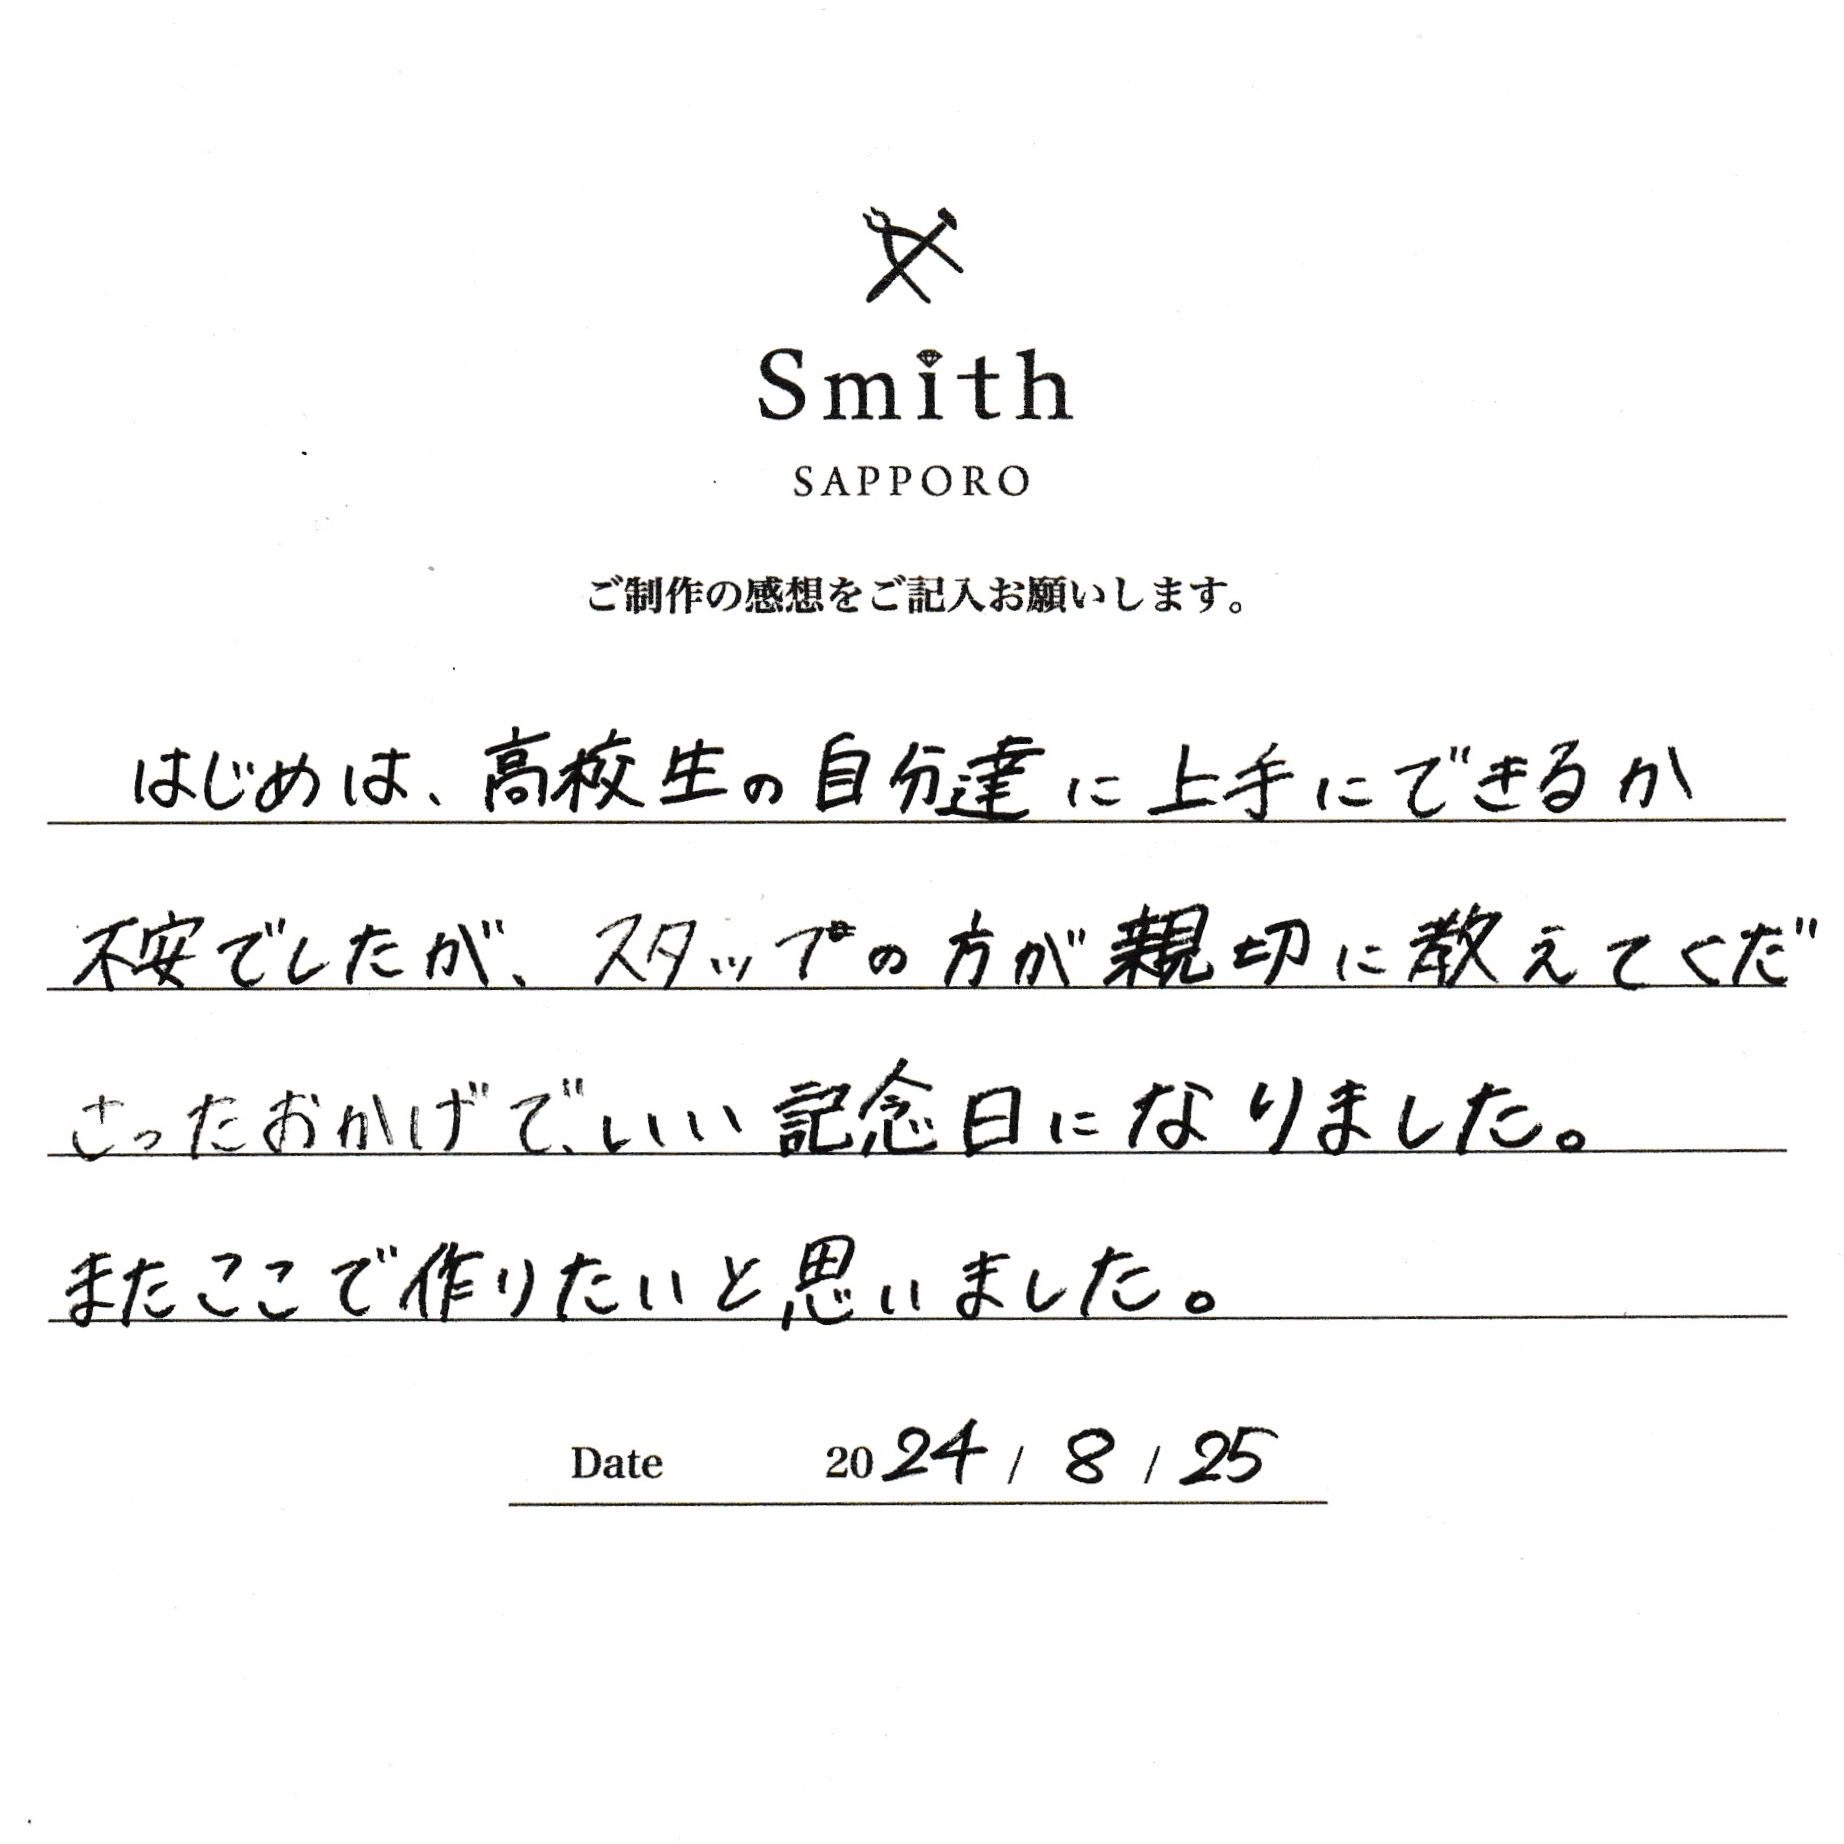 Smith
SAPPORO
ご制作の感想をご記入お願いします。
はじめは、高校生の自分達に上手にできるか
不安でしたが、スタッフの方が親切に教えてくだ
さったおかげで、いい記念日になりました。
またここで作りたいと思いました。
Date 2024 / 8 / 25